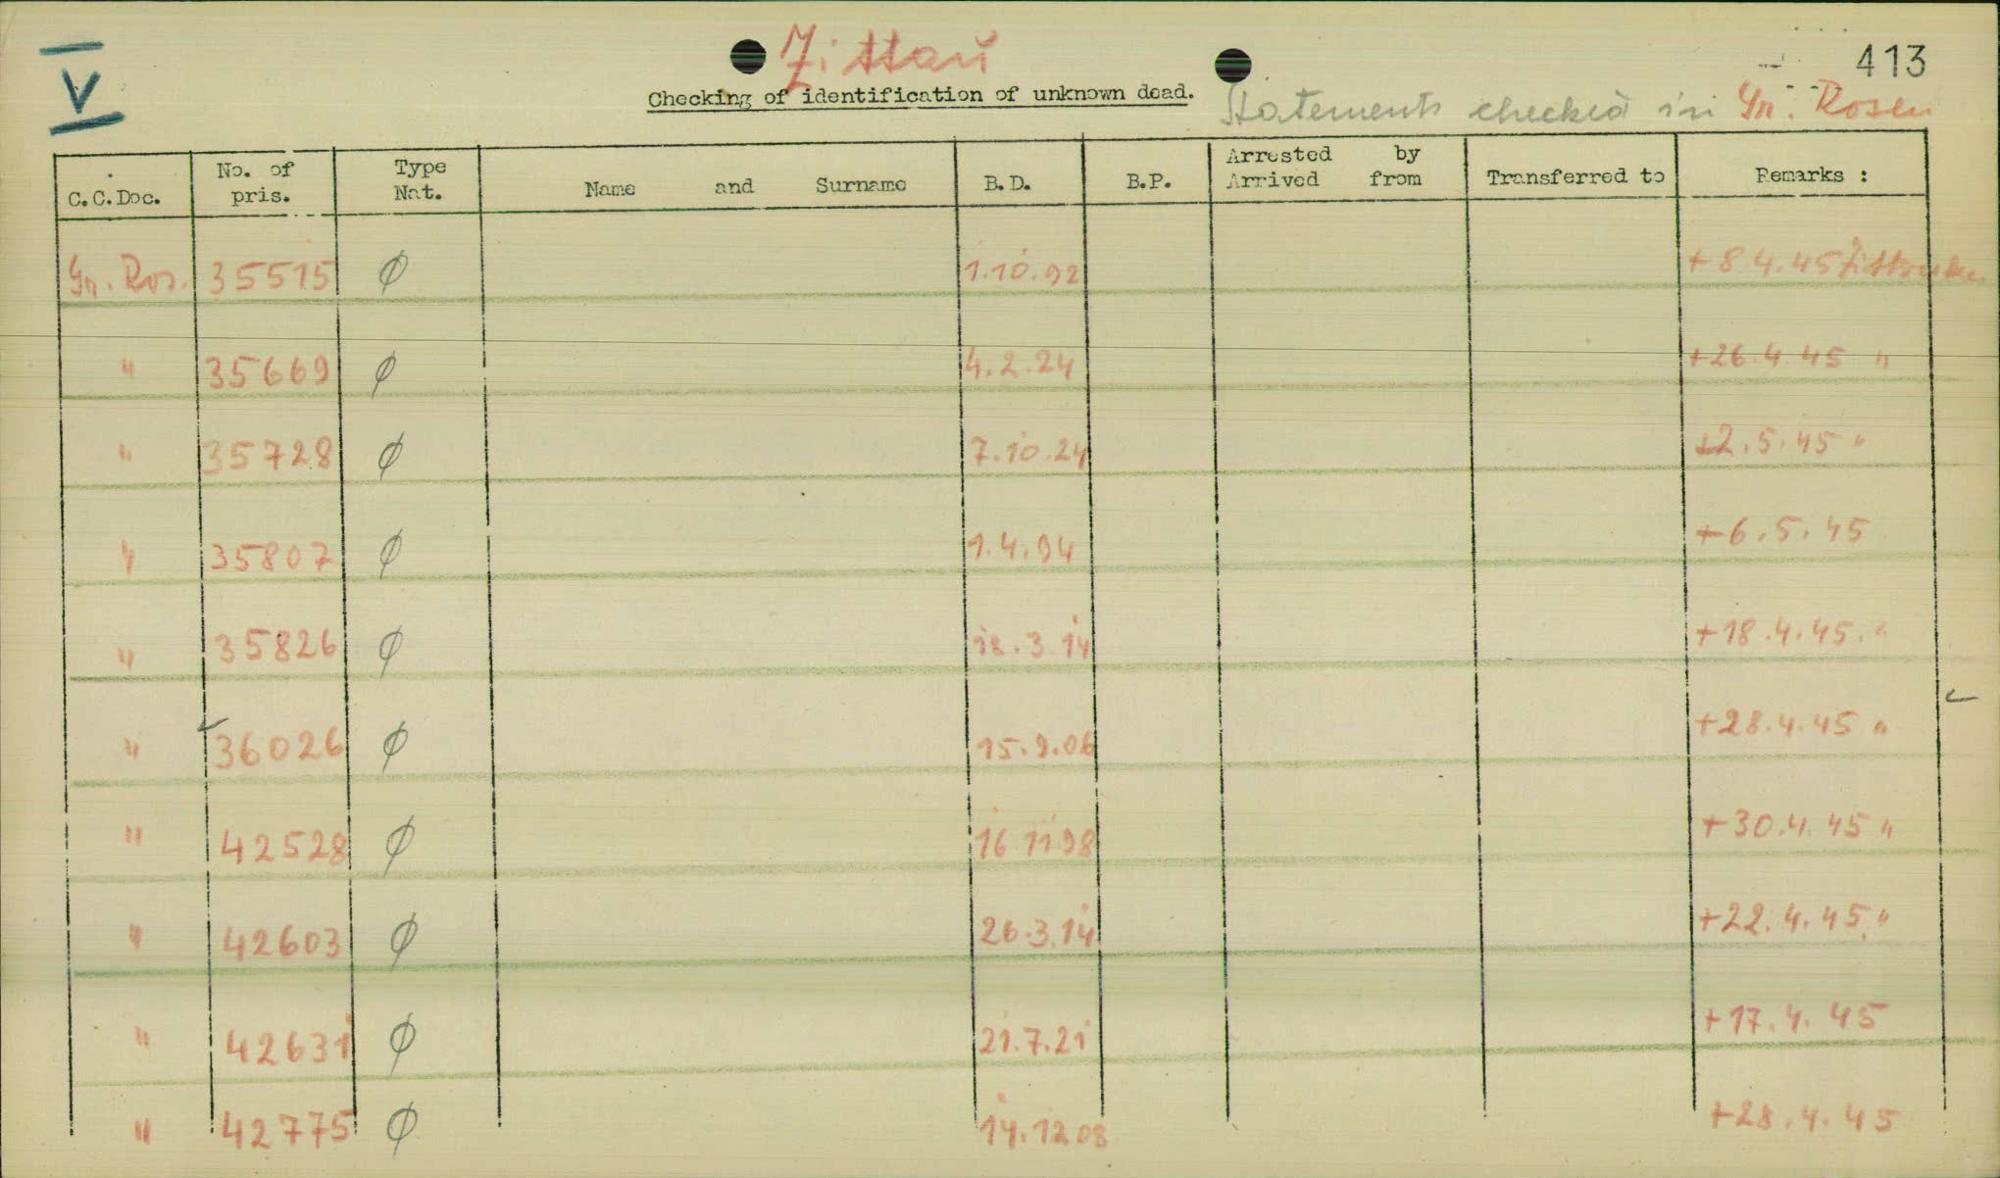 V
Zittau
413
Checking of identification of unknown dead.
Statements checked in Gr. Rosen
C.C.Doc. No. of pris. Type Nat. Name and Surname B.D. B.P. Arrested by Arrived from Transferred to Remarks :
Gr. Ros. 35515 Ø 1.10.92 + 8 4.45
" 35669 Ø 4.2.24 +26.4.45 "
" 35728 Ø 7.10.24 +2.5.45 "
" 35807 Ø 1.4.94 +6.5.45
" 35826 Ø 18.3.14 +18.4.45. "
" 36026 Ø 15.9.06 +28.4.45 "
" 42528 Ø 16 11 98 +30.4.45 "
" 42603 Ø 26.3.14 +22.4.45. "
" 42631 Ø 21.7.21 +17.4.45
" 42775 Ø 14.12 08 +28.4.45